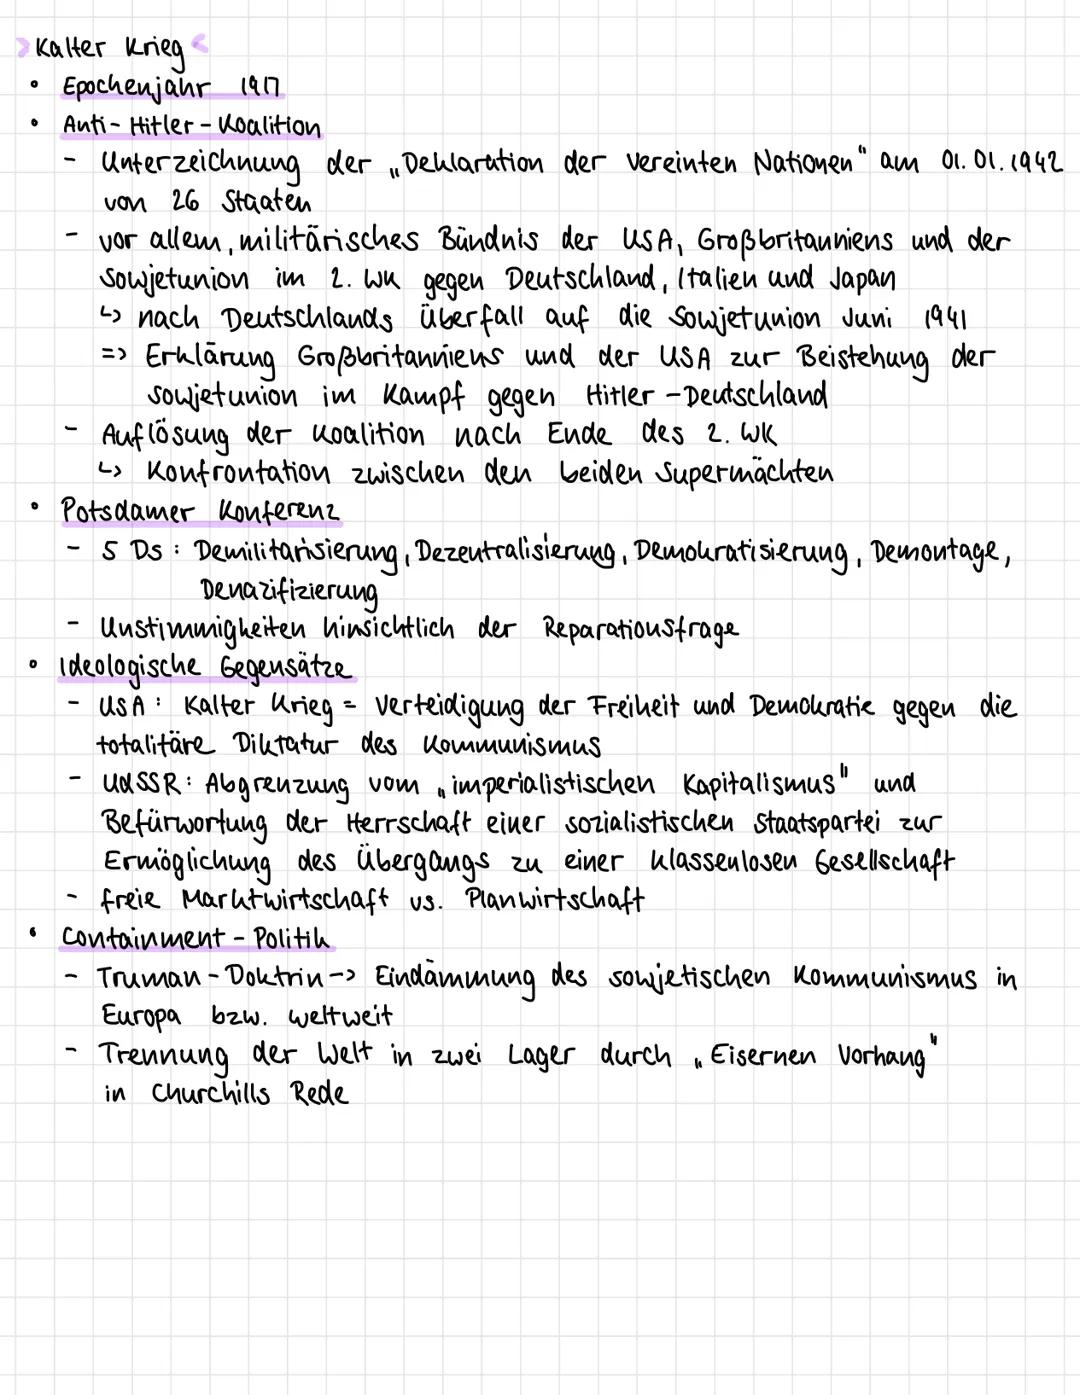 > Kalter Krieg <
• Epochenjahr 1917
• Anti-Hitler-Koalition
- Unterzeichnung der „Deklaration der vereinten Nationen" am 01.01.1942
von 26 Staaten
- vor allem, militärisches Bündnis der USA, Großbritanniens und der
Sowjetunion im 2. WK gegen Deutschland, Italien und Japan
↳ nach Deutschlands Überfall auf die Sowjetunion Juni 1941
=> Erklärung Großbritanniens und der USA zur Beistehung der
Sowjetunion im Kampf gegen Hitler-Deutschland
- Auflösung der Koalition nach Ende des 2. WK
↳ Konfrontation zwischen den beiden Supermächten
• Potsdamer Konferenz
- 5 Ds: Demilitarisierung, Dezentralisierung, Demokratisierung, Demontage,
Denazifizierung
- Unstimmigkeiten hinsichtlich der Reparationsfrage
• Ideologische Gegensätze
- USA: Kalter Krieg = Verteidigung der Freiheit und Demokratie gegen die
totalitäre Diktatur des Kommunismus
- UdSSR: Abgrenzung vom „imperialistischen Kapitalismus" und
Befürwortung der Herrschaft einer sozialistischen Staatspartei zur
Ermöglichung des Übergangs zu einer klassenlosen Gesellschaft
- freie Marktwirtschaft vs. Planwirtschaft
• Containment-Politik
- Truman-Doktrin -> Eindämmung des sowjetischen Kommunismus in
Europa bzw. weltweit
- Trennung der Welt in zwei Lager durch „Eisernen Vorhang"
in Churchills Rede